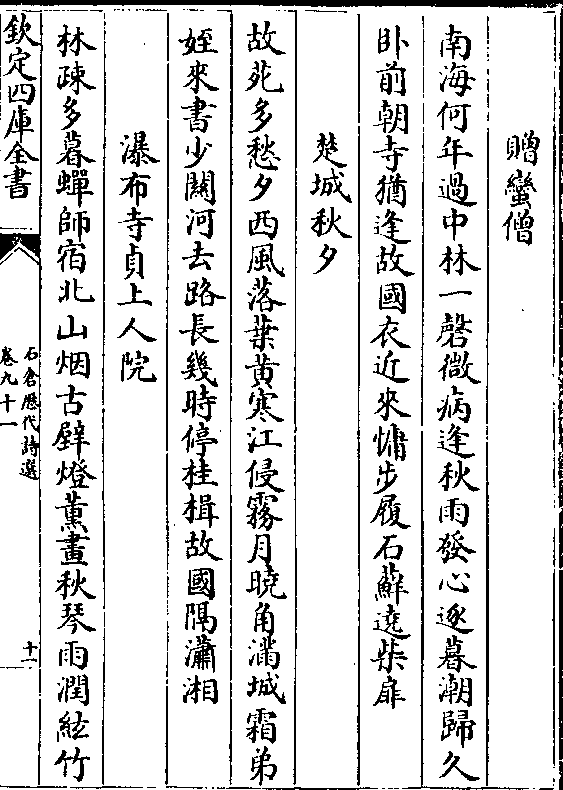 贈蠻僧
南海何年過中林一磬微病逢秋雨發心逐暮潮歸久
卧前朝寺猶逢故國衣近來慵步履石蘚遶柴扉
楚城秋夕
故苑多愁夕西風落葉黄寒江侵霧月曉角滿城霜弟
姪來書少關河去路長幾時停桂楫故國隔瀟湘
瀑布寺貞上人院
林疎多暮蟬師宿北山烟古壁燈薰畫秋琴雨潤絃竹
欽定四庫全書
石倉歷代詩選
卷九十一
十二